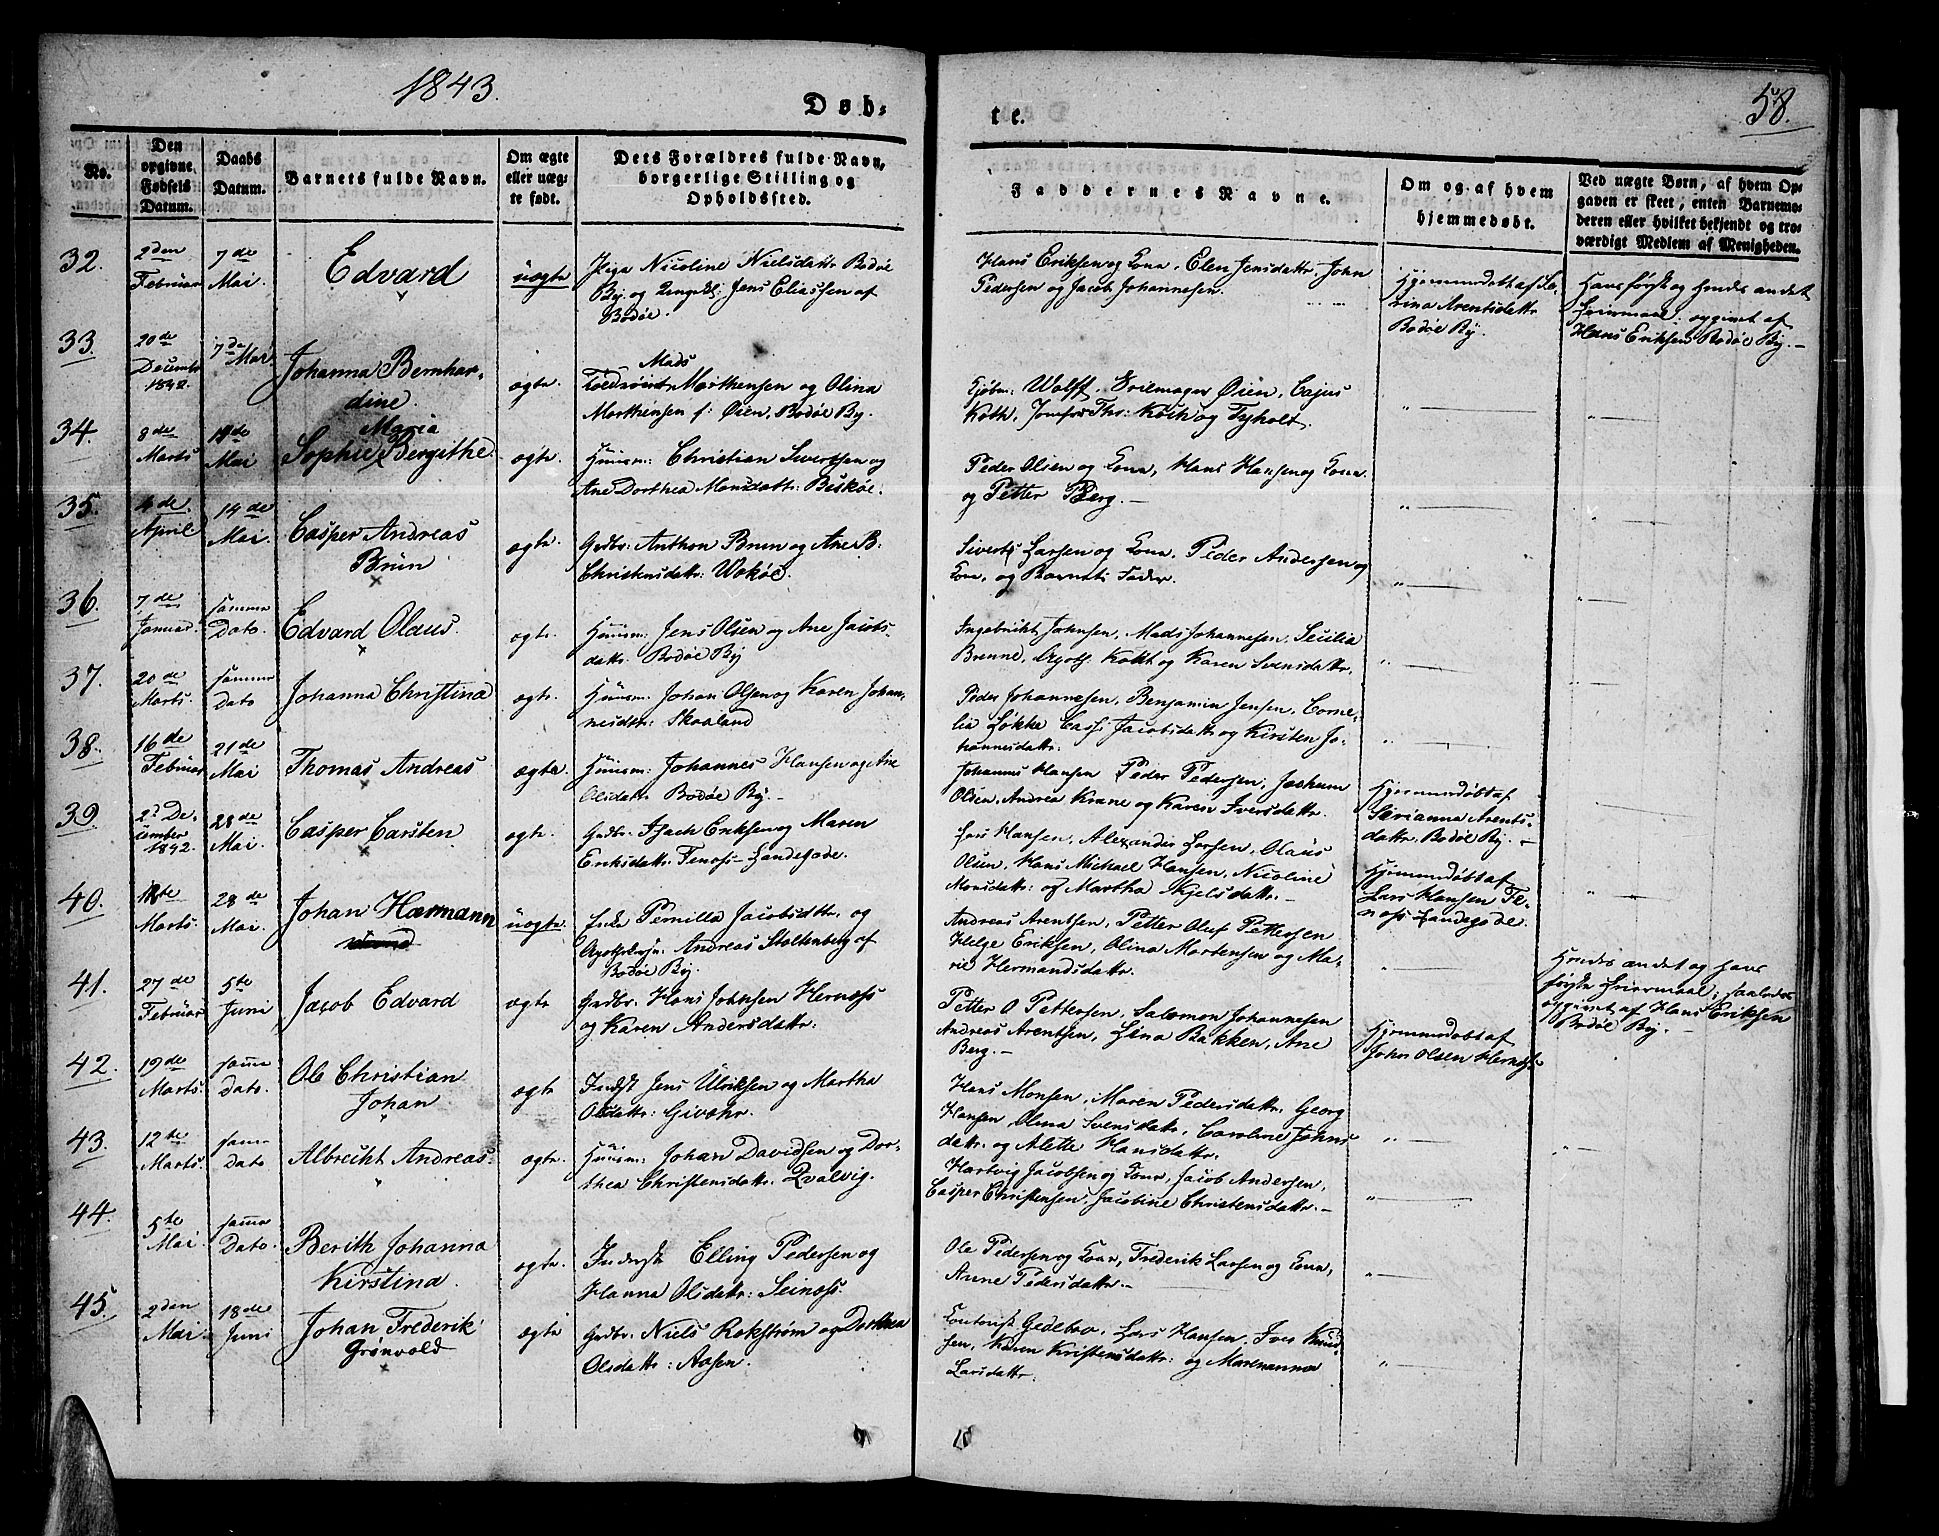 1843.
Døb-
te.
58.
No.
Den
opgivne
Fødsels
Datum.
Daabs
Datum.
Barnets fulde Navn.
Om ægte
eller uæg-
te født.
Dets Forældres fulde Navn,
borgerlige Stilling og
Opholdssted.
Faddernes Navne.
Om og af hvem
hjemmedøbt.
Ved uægte Børn, af hvem Op-
gaven er skeet, enten Barnemo-
deren eller hvilket bekjendt og tro-
værdigt Medlem af Menigheden.
32.
2den
Februar
7de
Mai.
Edvard
uægte
Pige Nicoline Nielsdattr Bodøe
By og Jens Eliassen af
Bodøe.
Hans Eriksen og Kona, Elen Jensdattr, John
Pedersen og Jacob Johannesen.
Hjemmedøbt af Se-
rina Arentsdattr
Bodøe By.
Hans første og hendes andet
Leiermaal; opgivet af
Hans Eriksen Bodøe By.
33.
20de
December
1842.
7de Mai
Johanna Bernhar-
dine.
ægte.
Mads
Morthensen og Olina
Morthensen f: Øien, Bodøe By.
Kjøbm: Wolff, Øien, Cajus
Koth, Jomfru Ths: Koch og Fyholt.
"
"
34.
8de
Marts
14de
Mai
Maria
Sophie Bergithe
ægte
Huusm: Christian Sivertsen og
Ane Dorthea Monsdattr: Biskøe.
Peder Olsen og Kona, Hans Hansen og Kona
og Petter Berg.
"
"
35.
4de
April.
14de
Mai.
Casper Andreas
Brun
ægte
Grdbr: Anthon Brun og Ane B.
Christensdattr: Wokøe.
Sivert Larsen og Kona, Peder Andersen og
Kona, og Barnets Fader.
"
"
36.
7de
Januar.
samme
Dato.
Edvard Olaus.
ægte.
Huusm: Jens Olsen og Ane Jacobs-
dattr: Bodøe By
Ingebricht Johnsen, Mads Johannesen, Secilia
Brenne, Kokt og Karen Svensdattr.
"
"
37.
20de
Marts.
samme
Dato
Johanna Christina
ægte.
Huusm: Johan Olsen og Karen Johan-
nesdtr: Skaaland
Peder Johannesen, Benjamin Jensen, Corne-
lia Løkke Jacobsdattr og Kirsten Jo-
hannesdattr.
"
38.
16de
Februar
21de
Mai
Thomas Andreas
ægte.
Huusm: Johannes Hansen og Ane
Olsdattr: Bodøe By.
Johannes Hansen Peder Pedersen, Jochum
Olsen, Andrea Krane og Karen Iversdattr.
Hjemmedøbt af
Serianna Arents-
dattr. Bodøe By.
39
2d De-
cember
1842.
28de
Mai.
Casper Carsten
ægte.
Grdbr: Isach Eriksen og Maren
Eriksdattr: Fenoss-Landegode.
Lars Hansen, Alexander Larsen, Olaus
Olsen, Hans Michael Hansen, Nicoline
Monsdattr: og Martha Kjelsdattr.
Hjemmedøbt af
Lars Hansen Fe-
noss Landegode.
"
40.
Marts.
28de
Mai.
Johan Hermann
uægte.
Enke Pernilla Jacobsdttr. og
Andreas Stoltenberg af
Bodøe By.
Andreas Arentsen, Petter Oluf Pettersen
Helge Eriksen, Olina Mortensen og Ma-
rie Hermandsdattr.
"
Hendes andet og hans
første Leiermaal; saaledes
opgivet af Hans Eriksen
Bodøe By.
41.
27de
Februar
5te
Juni
Jacob Edvard
ægte
Grdbr. Hans Johnsen Hernæss
og Karen Andersdattr:
Petter O Pettersen, Salomon Johannesen
Andreas Arentsen, Lina Bakken, Ane
Berg.
Hjemmedøbt af
John Olsen Hernæss
42.
19de
Marts.
samme
Dato.
Ole Christian
Johan
ægte
Indst Jens Ulriksen og Martha
Olsdattr: Givær.
Hans Monsen, Maren Pedersdattr. Georg
Hansen, Olina Svensdattr, Caroline Johns-
dattr. og Alette Hansdattr.
"
"
43.
12te
Marts.
samme
Dato
Albrecht Andreas.
ægte.
Huusm: Johan Davidsen og Dor-
thea Christensdattr. Qvalvig.
Hartvig Jacobsen og Kona, Jacob Andersen,
Casper Christensen, Jacobine Christensdattr.
"
44.
5te
Mai
samme
Dato.
Berith Johanna
Kirstina.
ægte.
Inderst Elling Pedersen og
Hanna Olsdattr: Seinoss.
Ole Pedersen og Kona, Frederik Larsen og Kona,
Anne Pedersdattr.
"
45.
2den
Mai.
18de
Juni
Johan Frederik
Grønvold
ægte
Grdbr. Niels Rokstrøm og Dorthea
Olsdattr: Aasen.
Gedebro, Lars Hansen, Iver Knud-
sen, Karen Kristensdattr: og Marenanna
Larsdattr.
"